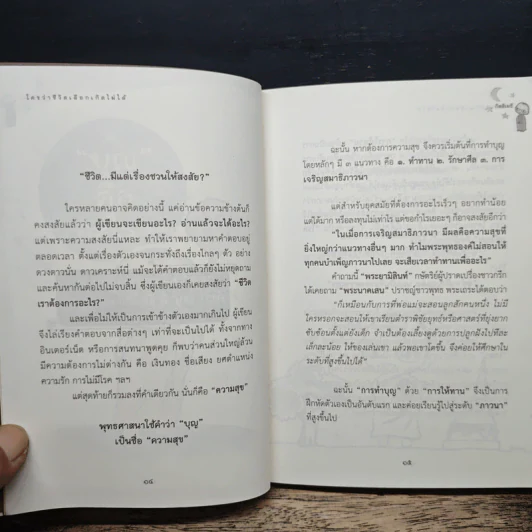 ใครว่าชีวิตเลือกเกิดไม่ได้
"ชีวิต...มีแต่เรื่องชวนให้สงสัย?"
ใครหลายคนอาจคิดอย่างนี้ แต่อ่านข้อความข้างต้นก็
คงสงสัยแล้วว่า ผู้เขียนจะเขียนอะไร? อ่านแล้วจะได้อะไร?
แต่เพราะความสงสัยนี่แหละ ทำให้เราพยายามหาคำตอบอยู่
ตลอดเวลา ตั้งแต่เรื่องตัวเองจนกระทั่งถึงเรื่องไกลๆ ตัว อย่าง
ดวงดาวนั่น ดาวเคราะห์นี่ แม้จะได้คำตอบแล้วก็ยังไม่หยุดถาม
และค้นหากันต่อไปไม่จบสิ้น ซึ่งผู้เขียนเองก็เคยสงสัยว่า "ชีวิต
เราต้องการอะไร?"
และเพื่อไม่ให้เป็นการเข้าข้างตัวเองมากเกินไป ผู้เขียน
จึงไล่เรียงคำตอบจากสื่อต่างๆ เท่าที่จะเป็นไปได้ ทั้งจากทาง
อินเตอร์เน็ต หรือการสนทนาพูดคุย ก็พบว่าคนส่วนใหญ่ล้วน
มีความต้องการไม่ต่างกัน คือ เงินทอง ชื่อเสียง ยศตำแหน่ง
ความรัก การไม่มีโรค ฯลฯ
แต่สุดท้ายก็รวมลงที่คำเดียวกัน นั่นก็คือ "ความสุข"
พุทธศาสนาใช้คำว่า "บุญ"
เป็นชื่อ "ความสุข"
๑๔
ฉะนั้น หากต้องการความสุข จึงควรเริ่มต้นที่การทำบุญ
โดยหลักๆ มี ๓ แนวทาง คือ ๑. ทำทาน ๒. รักษาศีล ๓. การ
เจริญสมาธิภาวนา
แต่สำหรับยุคสมัยที่ต้องการอะไรเร็วๆ อยากทำน้อย
แต่ได้มาก หรือลงทุนไม่เท่าไร แต่ขอกำไรเยอะๆ ก็อาจสงสัยอีกว่า
"ในเมื่อการเจริญสมาธิภาวนา มีผลคือความสุขที่
ยิ่งใหญ่กว่าแนวทางอื่นๆ มาก ทำไมพระพุทธองค์ไม่สอนให้
ทุกคนบำเพ็ญภาวนาไปเลย จะเสียเวลาทำทานเพื่ออะไร?"
คำถามนี้ "พระยามิลินท์" กษัตริย์ผู้ปราดเปรื่องชาวกรีก
ได้เคยถาม "พระนาคเสน" ปราชญ์ชาวพุทธ พระเถระได้ตอบว่า
"ก็เหมือนกับการที่พ่อแม่จะสอนลูกสักคนหนึ่ง ไม่มี
ใครหรอกจะสอนให้เขาเรียนตำราพิชัยยุทธ์หรือศาสตร์ที่ยุ่งยาก
ซับซ้อนตั้งแต่ยังเด็ก จำเป็นต้องเลี้ยงดูด้วยการปลูกฝังไปทีละ
เล็กละน้อย ให้ของเล่นเขา แล้วพอเขาโตขึ้น จึงค่อยให้ศึกษาใน
ระดับที่สูงขึ้นไปได้"
ฉะนั้น "การทำบุญ" ด้วย "การให้ทาน" จึงเป็นการ
ฝึกหัดตัวเองเป็นอันดับแรก และค่อยเรียนรู้ไปสู่ระดับ "ภาวนา"
ที่สูงขึ้นไป
๑๕